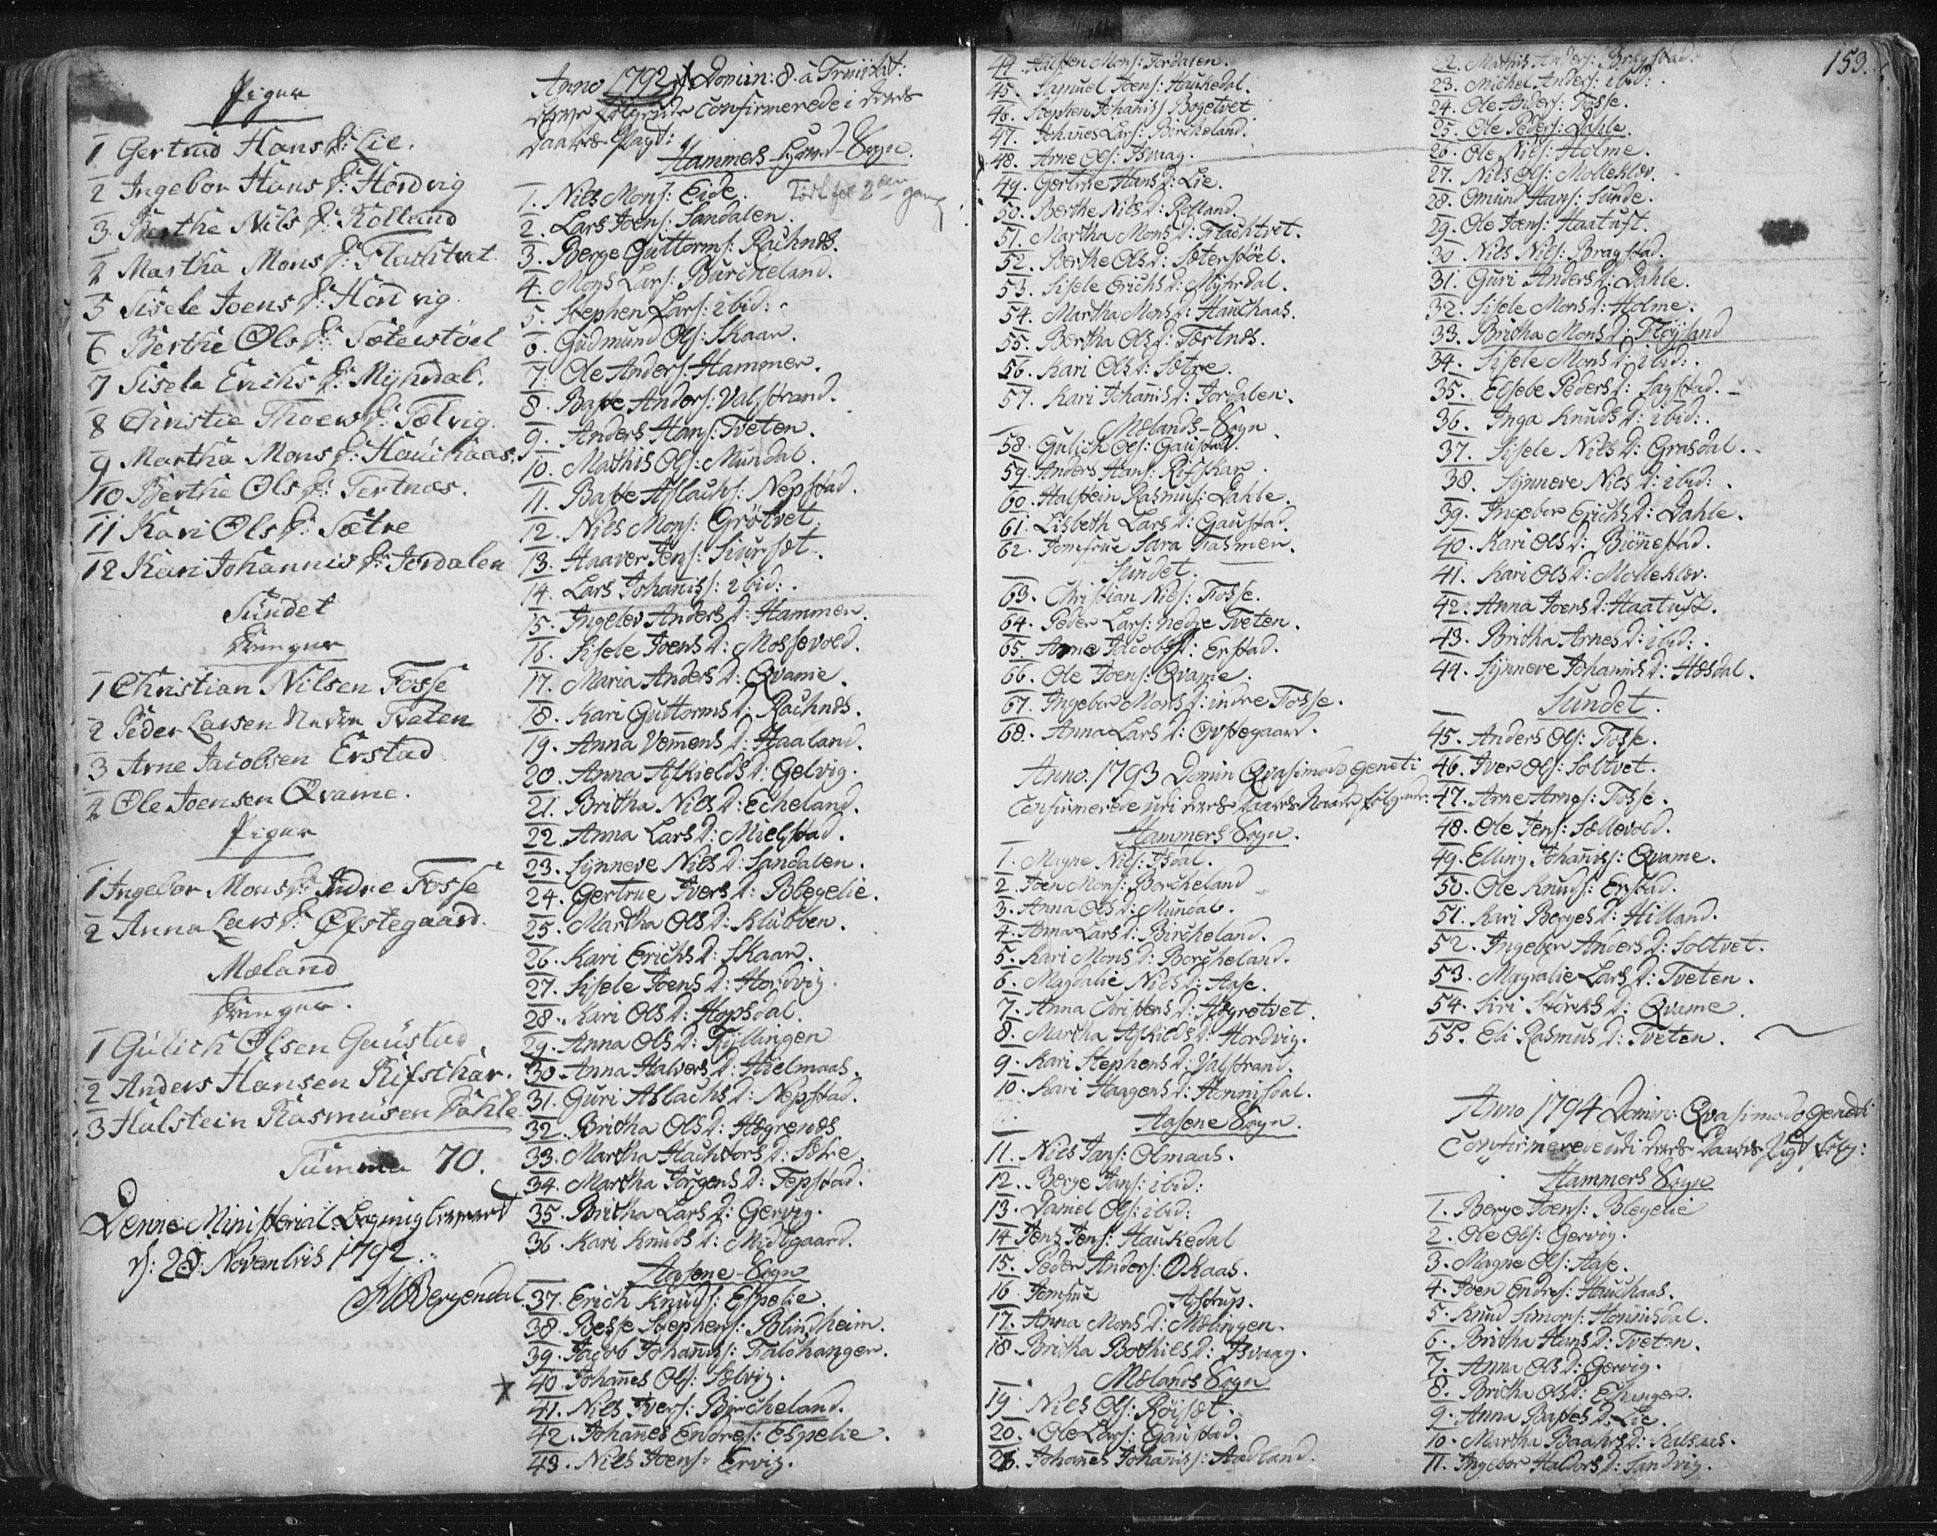 Piger
1 Gertrud Hans D: Lie.
2 Ingebor Hans D: Hordvig
3. Berthe Nils D: Rolland
4 Martha Mons D: Flachtvet
5 Sisele Joens D: Hordvig
6 Berthe Ols D: Sæterstöel
7 Sisele Erichs D: Myhrdal.
8 Christie Thoers D: Sælvig.
9 Martha Mons D: Hauchaas.
10 Berthe Ols D: Tertnæs.
11 Kari Ols D: Sætre
12 Kari Johannis D: Jordalen
Sundet
Drenger
1 Christian Nilsen Fosse
2 Peder Larsen Nedre Tveten
3 Arne Jacobsen Erstad
4 Ole Joensen Qvame.
Piger
1 Ingebor Mons D: Indre Fosse
2 Anna Lars D: Øfstegaard.
Mæland
Drenger.
1 Gulich Olsen Gaustad.
2 Anders Hansen Rifschar.
3 Halstein Rasmusen Dahle
Summa 70.
Denne Ministerial Bog mig leveret
d: 28 Novembris 1792.
Bergendal.
Anno 1792 Domin: 8. a Trinitat:
bleve følgende Confirmerede i deres
Daabs Pagt:
Hammers Sogn.
1. Nils Mons: Eide.
2. Lars Joens: Sandalen.
3. Berge Guttorms: Rachnes.
4. Mons Lars: Burcheland.
5. Stephen Lars: ibid:
6. Gudmund Ols: Skaar.
7. Ole Anders: Hammer.
8. Baste Anders: Valstrand.
9. Anders Hans: Tveten.
10. Mathis Ols: Mundal.
11. Baste Aslachs: Nepstad.
12. Nils Mons: Grötvet.
13. Haaver Jens: Siursæt.
14. Lars Johannis: ibid:
15. Ingelev Anders D: Hammer.
16. Sisele Joens D: Mossevold.
17. Maria Anders D: Qvame.
18. Kari Guttorms D: Rachnes.
19. Anna Vemmens D: Haaland.
20. Anna Askields D: Gelvig.
21. Britha Nils D: Echeland.
22. Anna Lars D: Mielstad.
23. Synneve Nils D: Sandalen.
24. Gertrue Ivers D: Blegelie.
25. Martha Ols D: Klubben.
26. Kari Erichs D: Skaar.
27. Sisele Joens D: Hordvig.
28. Kari Ols D: Hopsdal.
29. Anna Ols D: Kyllingen
30. Anna Halvors D: Hielmaas.
31. Guri Aslachs D: Nepstad.
32. Britha Ols D: Hægrenes
33. Martha Hachtors D: Sætre.
34. Martha Jörgens D: Tepstad.
35. Britha Lars D: Gervig.
36. Kari Knuds D: Midtgaard.
Aasene-Sogn
37. Erich Knuds: Espelie.
38. Besse Stephens: Blindheim.
39. Jacob Johannis: Falchanger.
40. Johannes Ols: Sælvig.
41. Nils Ivers: Bircheland.
42. Johannes Endres: Espelie.
43. Nils Joens: Ervig.
44. Halsten Mons: Jordalen.
45. Samuel Joens: Haukedal.
46. Stephen Johannis: Bogetvet
47. Johannes Lars: Bircheland.
48. Arne Ols: Isvaag.
49. Gertrue Hans D: Lie.
50. Berthe Nils D: Rolland.
51. Martha Mons D: Flachtvet.
52. Berthe Ols D: Sæterstöel.
53. Sisele Erichs D: Myhrdal.
54. Martha Mons D: Hauchaas.
55. Bertha Ols D: Tertnes.
56. Kari Ols D: Sætre.
57. Kari Johannis D: Jordalen.
Mælands-Sogn
58. Gulich Ols: Gaustad.
59. Anders Hans: Rifskar.
60. Halstein Rasmus: Dahle.
61. Lisbeth Lars D: Gaustad.
62. Jomfrue Sara Fasmer.
Sundet.
63. Christian Niels: Fosse.
64. Peder Lars: nedre Tveten.
65. Arne Jacobs: Erstad.
66. Ole Joens: Qvame.
67. Ingebor Mons D: indre Fosse.
68. Anna Lars D: Øvstegaard.
Anno 1793 Domin Qvasimodo geneti:
Confirmerede udi deres Daabs Naade følgende:
Hammers Sogn.
1. Magne Nils: Isdal.
2. Joen Mons: Borcheland
3. Anna Ols D: Mundal.
4. Anna Lars D: Bircheland.
5. Kari Mons D: Borcheland.
6. Magdalie Nils D: Aase.
7. Anna Christens D: Hægretvet.
8. Martha Askilds D: Hordvig.
9. Kari Stephens D: Valstrand.
10. Kari Haagens D: Honnisdal.
Aasene Sogn.
11. Nils Jans: Olmaas.
12. Berge Jans: ibid:
13. Daniel Ols: ibid:
14. Jens Jens: Haukedal
15. Peder Anders: Okaas.
16 Jomfrue Astrup.
17. Anna Mons D: Mælingen.
18 Britha Bothils D: Isvaag.
Mælands Sogn
19. Nils Ols: Röisæt.
20. Ole Lars: Gaustad.
21. Johannes Johannis: Hadland.
153.
22. Mathis Anders: Bragstad:
23. Michel Anders: ibid:
24. Ole Anders: Fosse.
25. Ole Peders: Dahle.
26. Ole Nils: Holme.
27. Nils Ols: Molleklev.
28. Omund Hans: Sunde.
29. Ole Joens: Haatuft.
30. Nils Nils: Bragstad.
31. Guri Anders D: Dahle.
32. Sisele Mons D: Holme.
33. Britha Mons D: Flöysand
34. Sisele Mons D: ibid:
35. Elsebe Peders D: Sagstad.
36. Inga Knuds D: ibid:
37. Sisele Nils D: Grasdal.
38. Synneve Nils D: ibid:
39. Ingebor Erichs D: Dahle.
40. Kari Ols D: Biönnestad.
41. Kari Ols D: Molleklev.
42. Anna Joens D: Haatuft.
43. Britha Arnes D: ibid:
44. Synneve Johannis D: Hæsdal.
Sundet.
45. Anders Ols: Fosse.
46. Iver Ols: Soltvet.
47. Arne Arnes: Fosse.
48. Ole Jens: Sællevold.
49. Elling Johannis: Qvame.
50. Ole Knuds: Erstad.
51. Kari Berges D: Hilland.
52. Ingebor Anders D: Soltvet.
53. Magdalie Lars D: Tveten.
54. Siri Stürks D: Qvame.
55. Eli Rasmus D: Tveten.
Anno 1794 Domin: Qvasimodo geneti
Confirmerede udi deres Daabs Pagt følg:
Hammers Sogn
1. Berge Joens: Blegelie
2. Ole Ols: Gervig.
3. Magne Ols: Aase.
4. Joen Endres: Hauchaas.
5. Knud Simons: Honnisdal.
6. Britha Hans D: Tveten.
7. Anna Ols D: Gervig.
8. Britha Ols D: Ehanger.
9. Anna Bastes D: Lie.
10. Martha Baahrs D: Kalsaas.
11. Ingebor Haldors D: Sandvig.